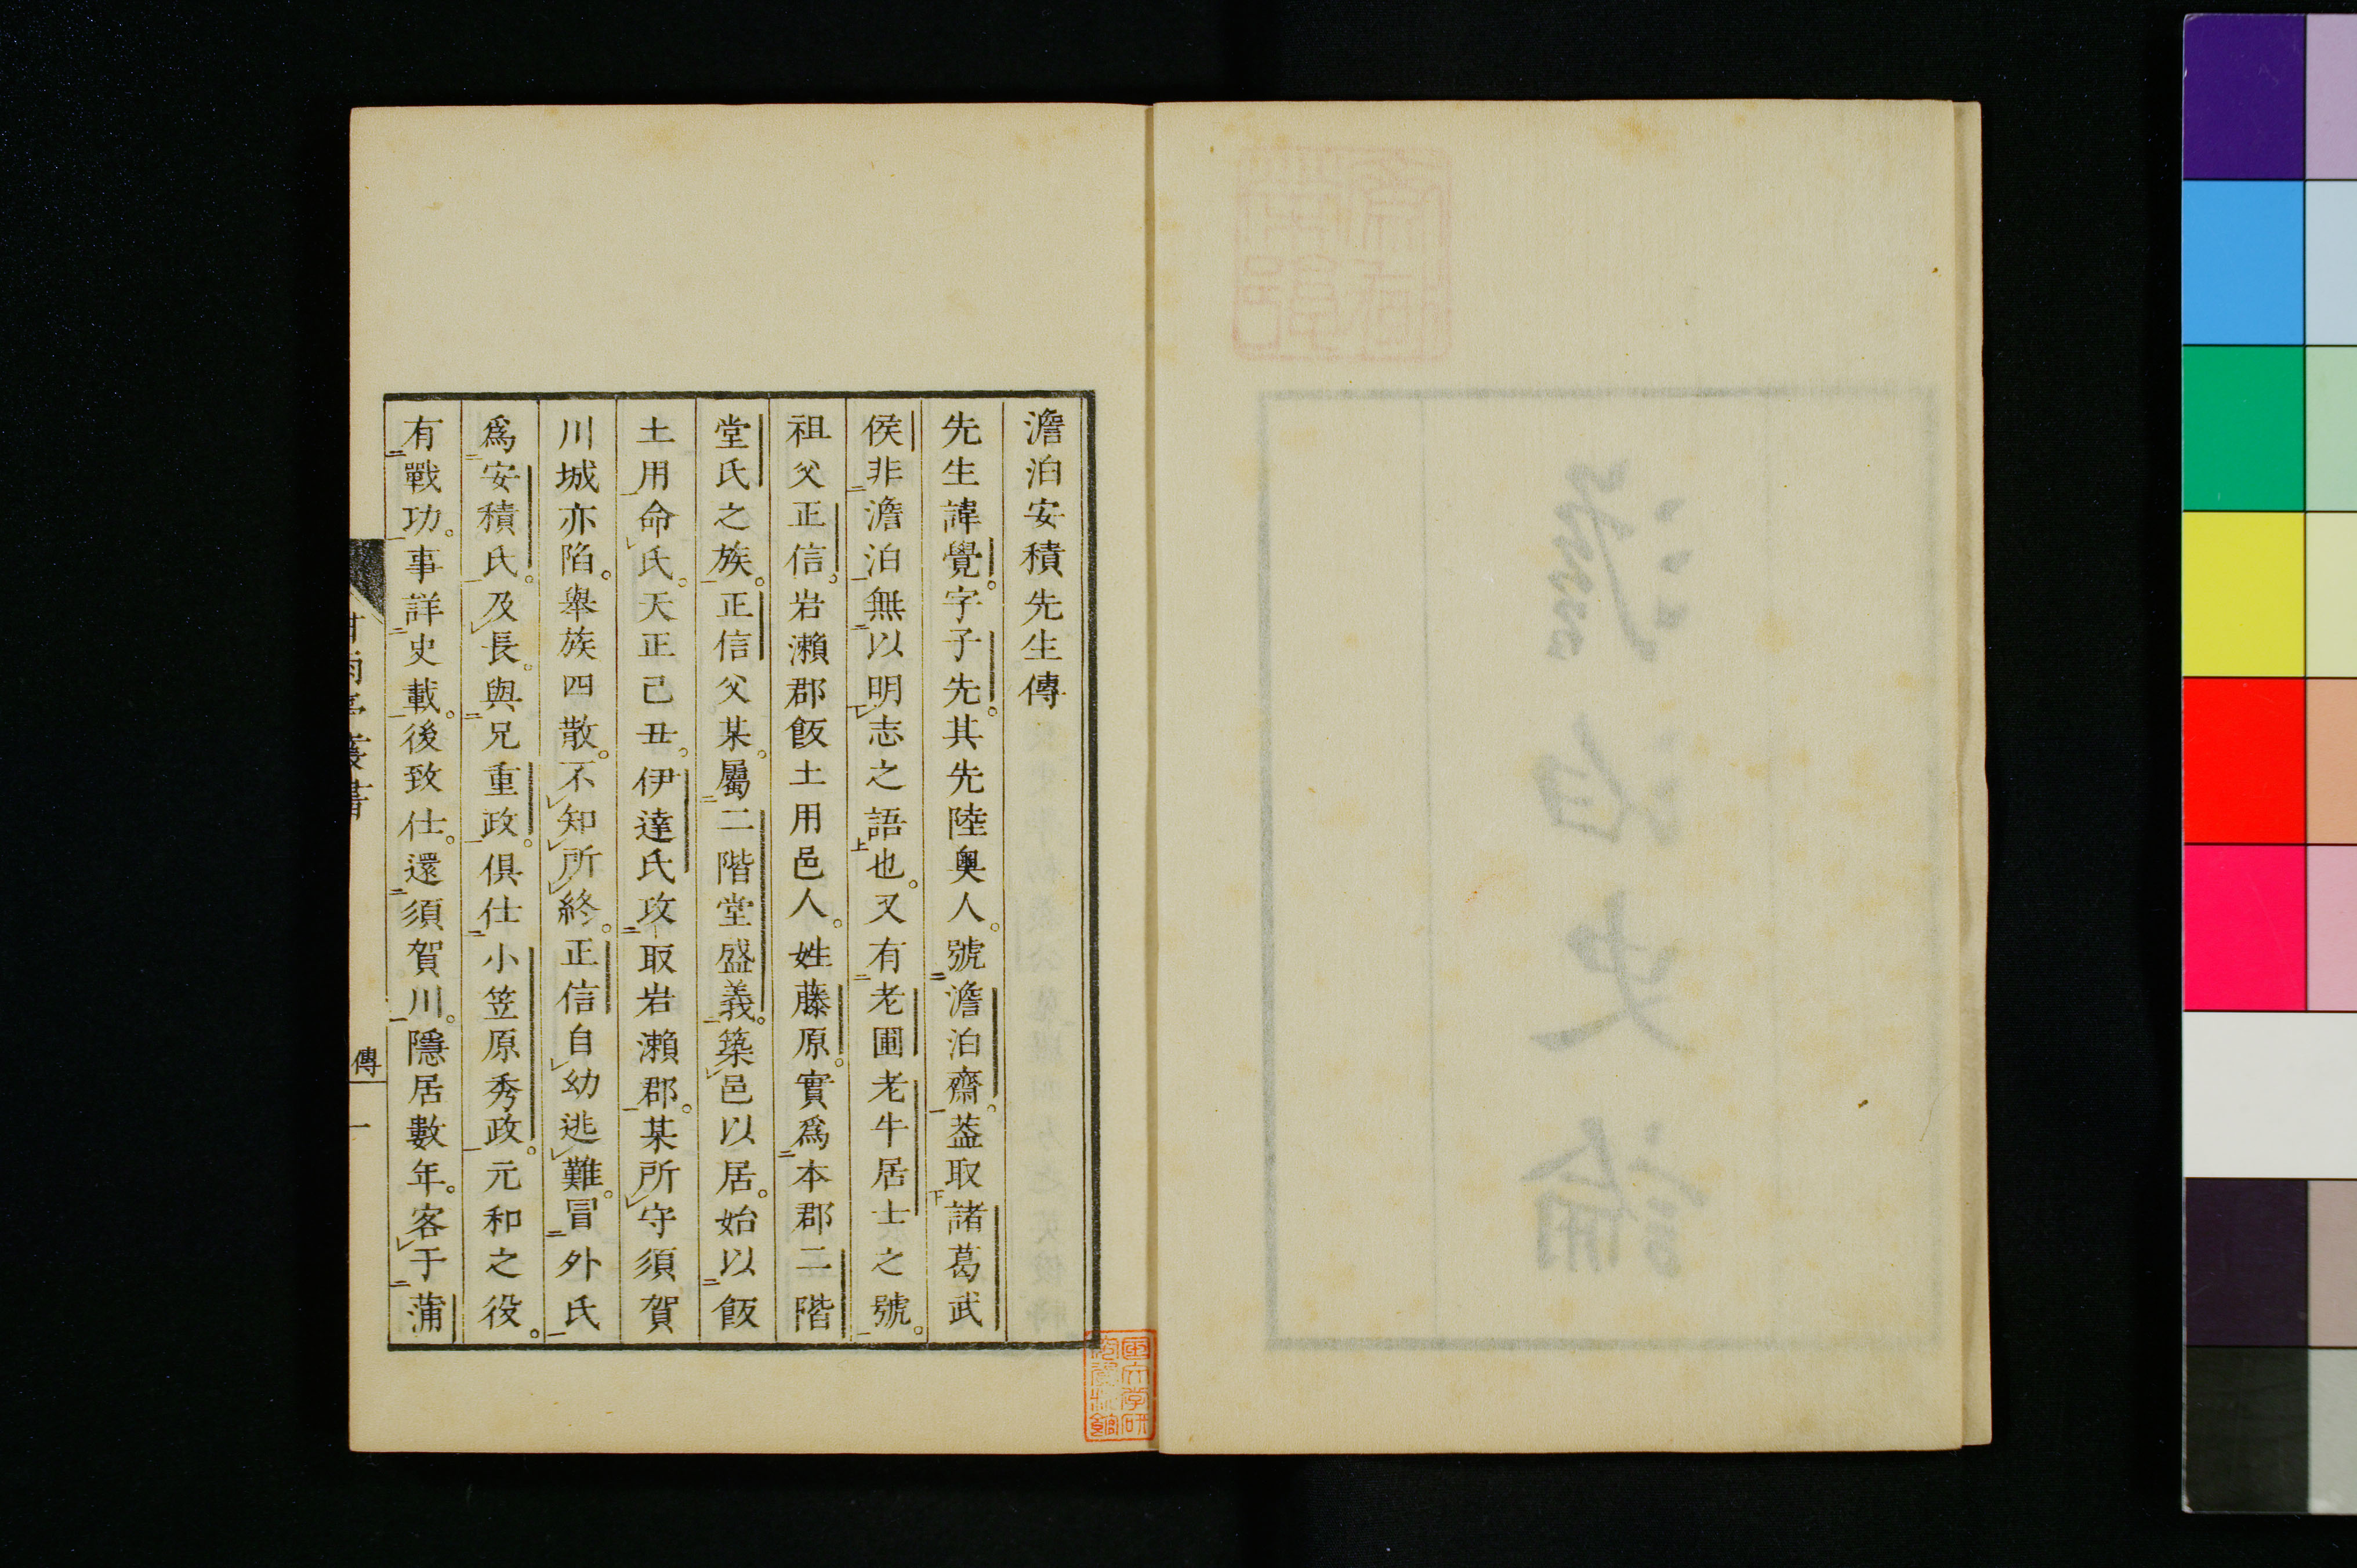 澹泊安積先生傳
先生諱覺。字子先。其先陸奥人。號澹泊齋。葢取諸葛武
侯非澹泊無以明志之語也。又有老圃老牛居士之號。
祖父正信。岩瀬郡飯土用邑人。姓藤原。實爲本郡二階
堂氏之族。正信父某。屬二階堂盛義。築邑以居。始以飯
土用命氏。天正己丑。伊達氏攻取岩瀬郡。某所守須賀
川城亦陷。舉族四散。不知所終。正信自幼逃難。冒外氏
爲安積氏。及長。與兄重政。俱仕小笠原秀政。元和之役。
有戰功。事詳史載。後致仕。還須賀川。隱居數年。客于蒲
甘雨亭叢書
傳
一
澹泊史論